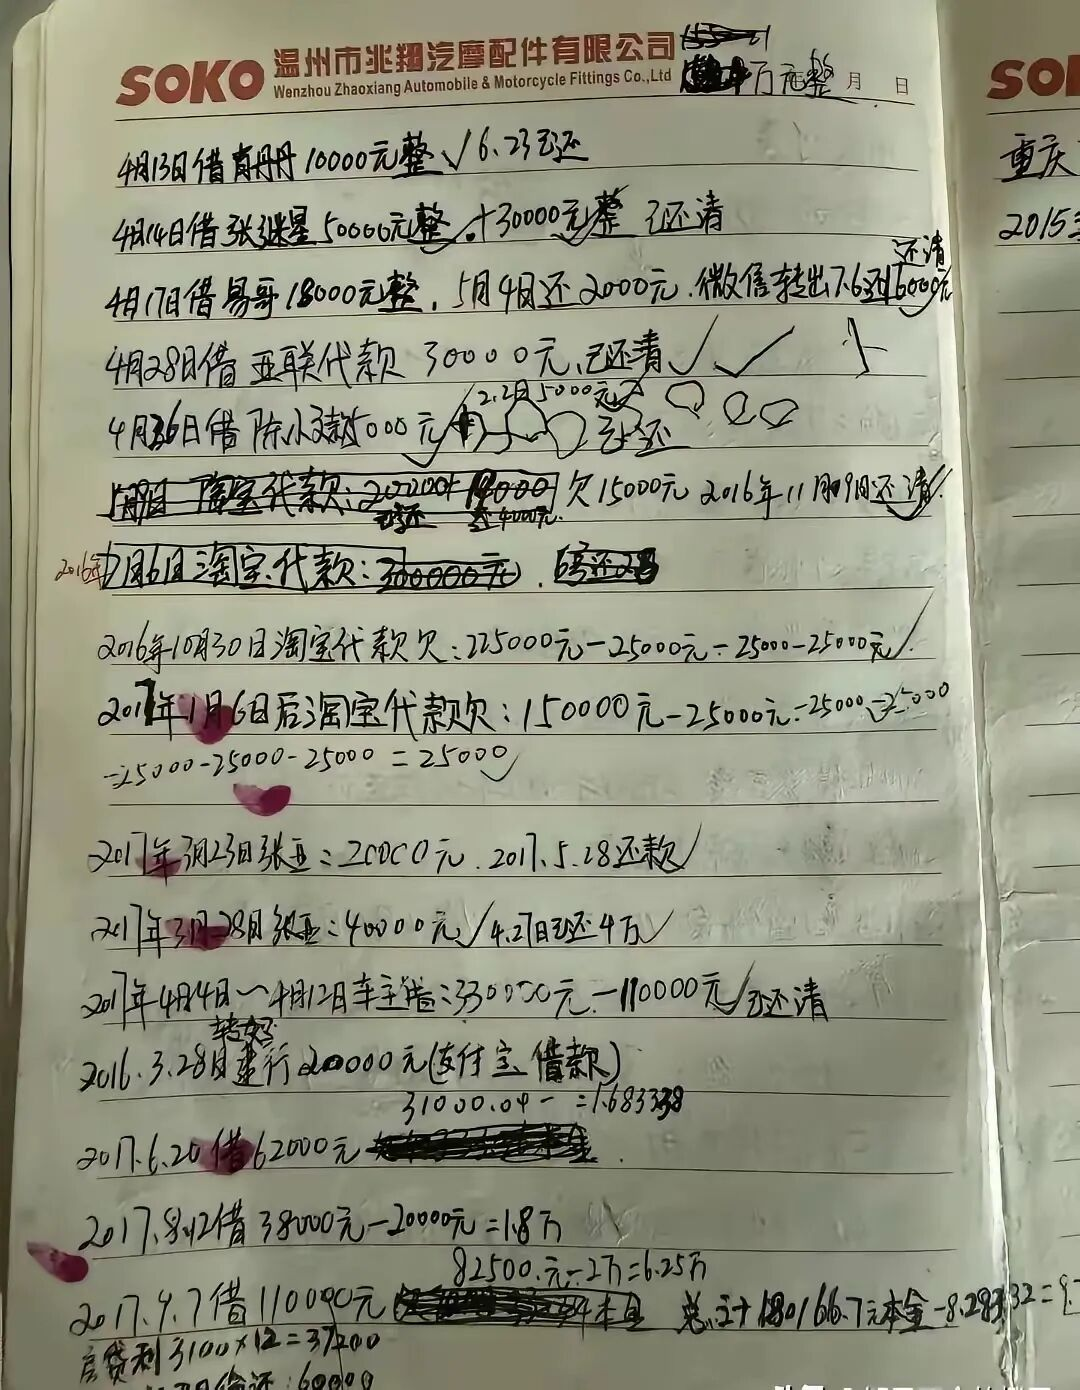 SOKO 温州市兆翔汽摩配件有限公司
Wenzhou Zhaoxiang Automobile & Motorcycle Fittings Co.,Ltd
万元整 月 日
4月13日借肖丹丹10000元整✓6.23已还
4月14日借张继星50000元整✓+30000元整 已还清
还清
4月17日借易哥18000元整,5月4日还2000元.微信转出7.6还16000元
4月28日借亚联代款30000元,已还清✓✓
2.2日5000元✓
4月 日借陈小 5000元✓ 已还
淘宝代款: 欠15000元 2016年11月09日还清✓
已还 还4000元
2016年7月6日淘宝代款:300000元.
2016年10月30日淘宝代款欠:225000元-25000元-25000-25000元✓
2017年1月6日后淘宝代款欠:150000元-25000元-25000-25000
-25000-25000-25000=25000✓
2017年3月23日张亚:20000元.2017.5.28还款✓
2017年3月28日张亚:40000元✓4.27日已还4万✓
2017年4月4日~4月12日车主借:330000元-110000元✓已还清
2016.3.28日建行20000元(支付宝借款)
31000.04- =1.683338
2017.6.20借62000元
2017.8.12借38000元-20000元=1.8万
82500.元-2万=6.25万
2017.9.7借110000元 本息 总计180166.7元本金-8.28332=
房贷利3100×12=37200
60000
SOKO
重庆
2015